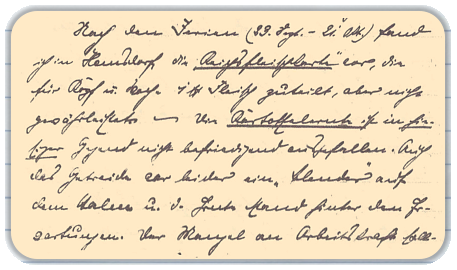 Nach den Ferien (23. Sept. - 21. Okt.) fand
ich in Hensdorf die Reichsfleischkarte vor, die
für Kopf u. Woche ½ ℔ Fleisch zuteilt, aber nicht
gewährleistet — Die Kartoffelernte ist in hie-
siger Gegend nicht befriedigend ausgefallen. Auch
das Getreide war leider ein „Blender" auf
dem Halm u. d. Ernte stand hinter den Er-
wartungen. Der Mangel an Arbeitskraft